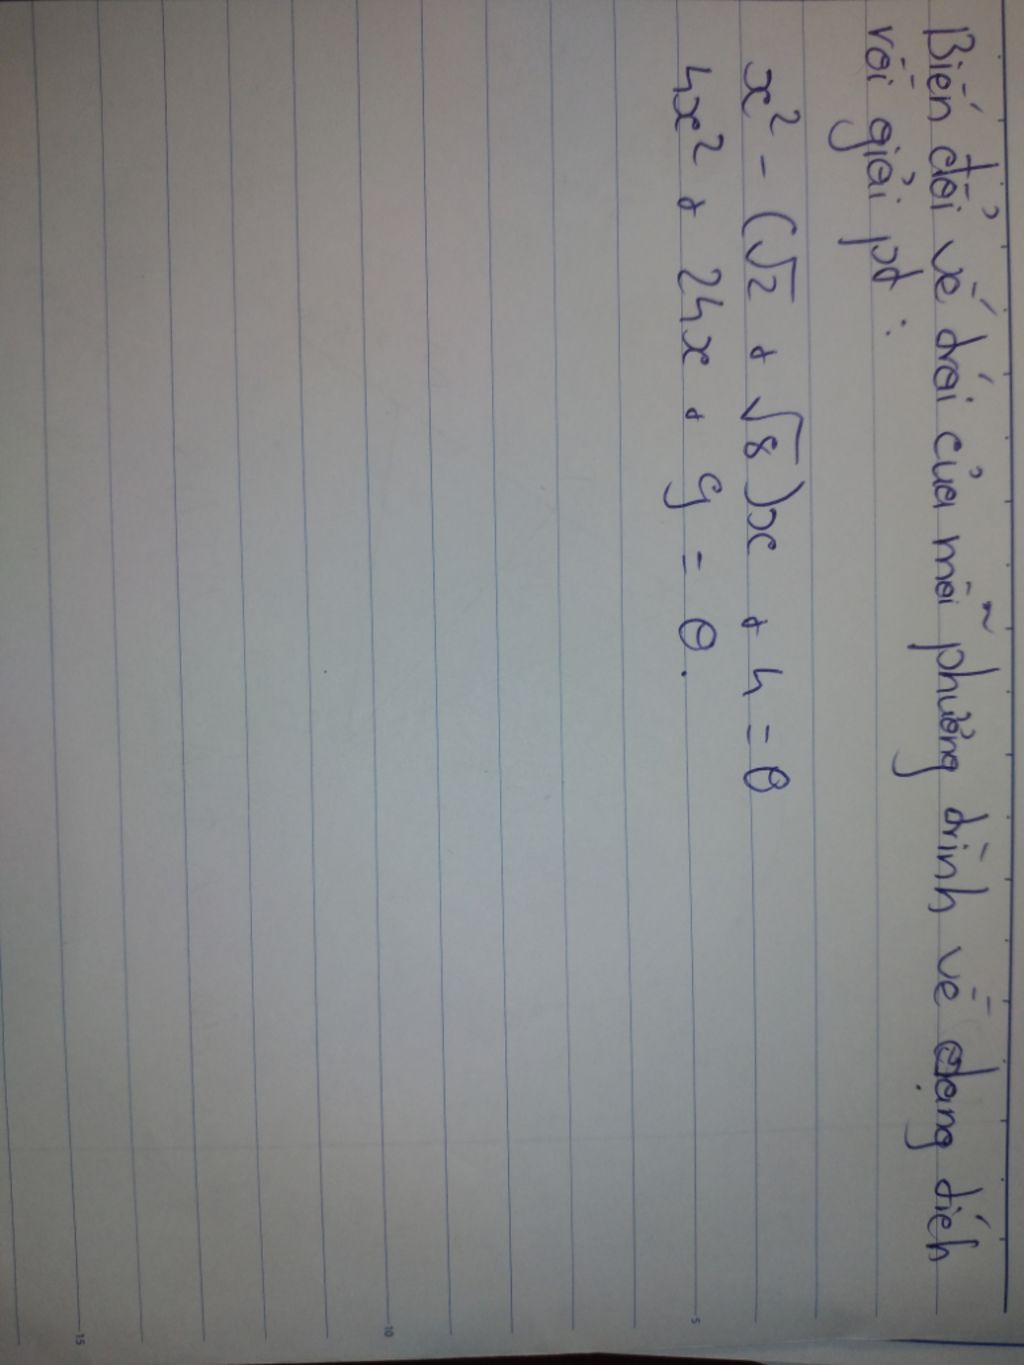 Biến đổi vế trái của mỗi phương trình về dạng tích
rồi giải pt :
x² - (√2 + √8)x + 4 = 0
4x² + 24x + 9 = 0.
5
10
15